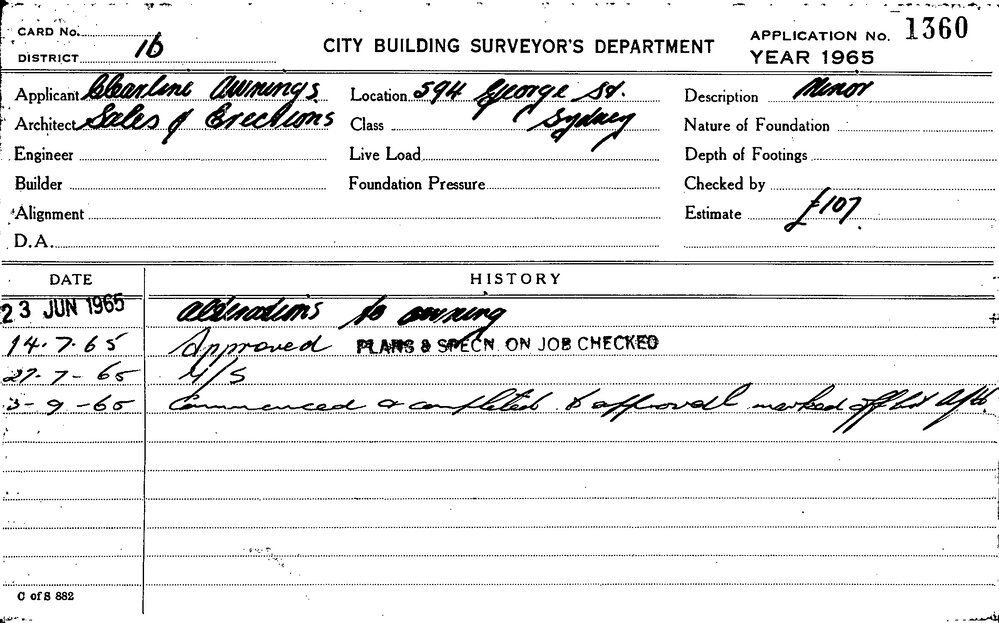 CARD No.
DISTRICT 16
CITY BUILDING SURVEYOR'S DEPARTMENT
APPLICATION No. 1360
YEAR 1965
Applicant Clearline Awnings
Location 594 George St.
Description Minor
Architect Sales & Erections
Class Sydney
Nature of Foundation
Engineer
Live Load
Depth of Footings
Builder
Foundation Pressure
Checked by
Alignment
Estimate £107.
D.A.
DATE
HISTORY
23 JUN 1965 alterations to awning
14.7.65 Approved PLANS & SPECN. ON JOB CHECKED
27-7-65 N/S
3-9-65 Commenced & completed to approval marked off
C of S 882